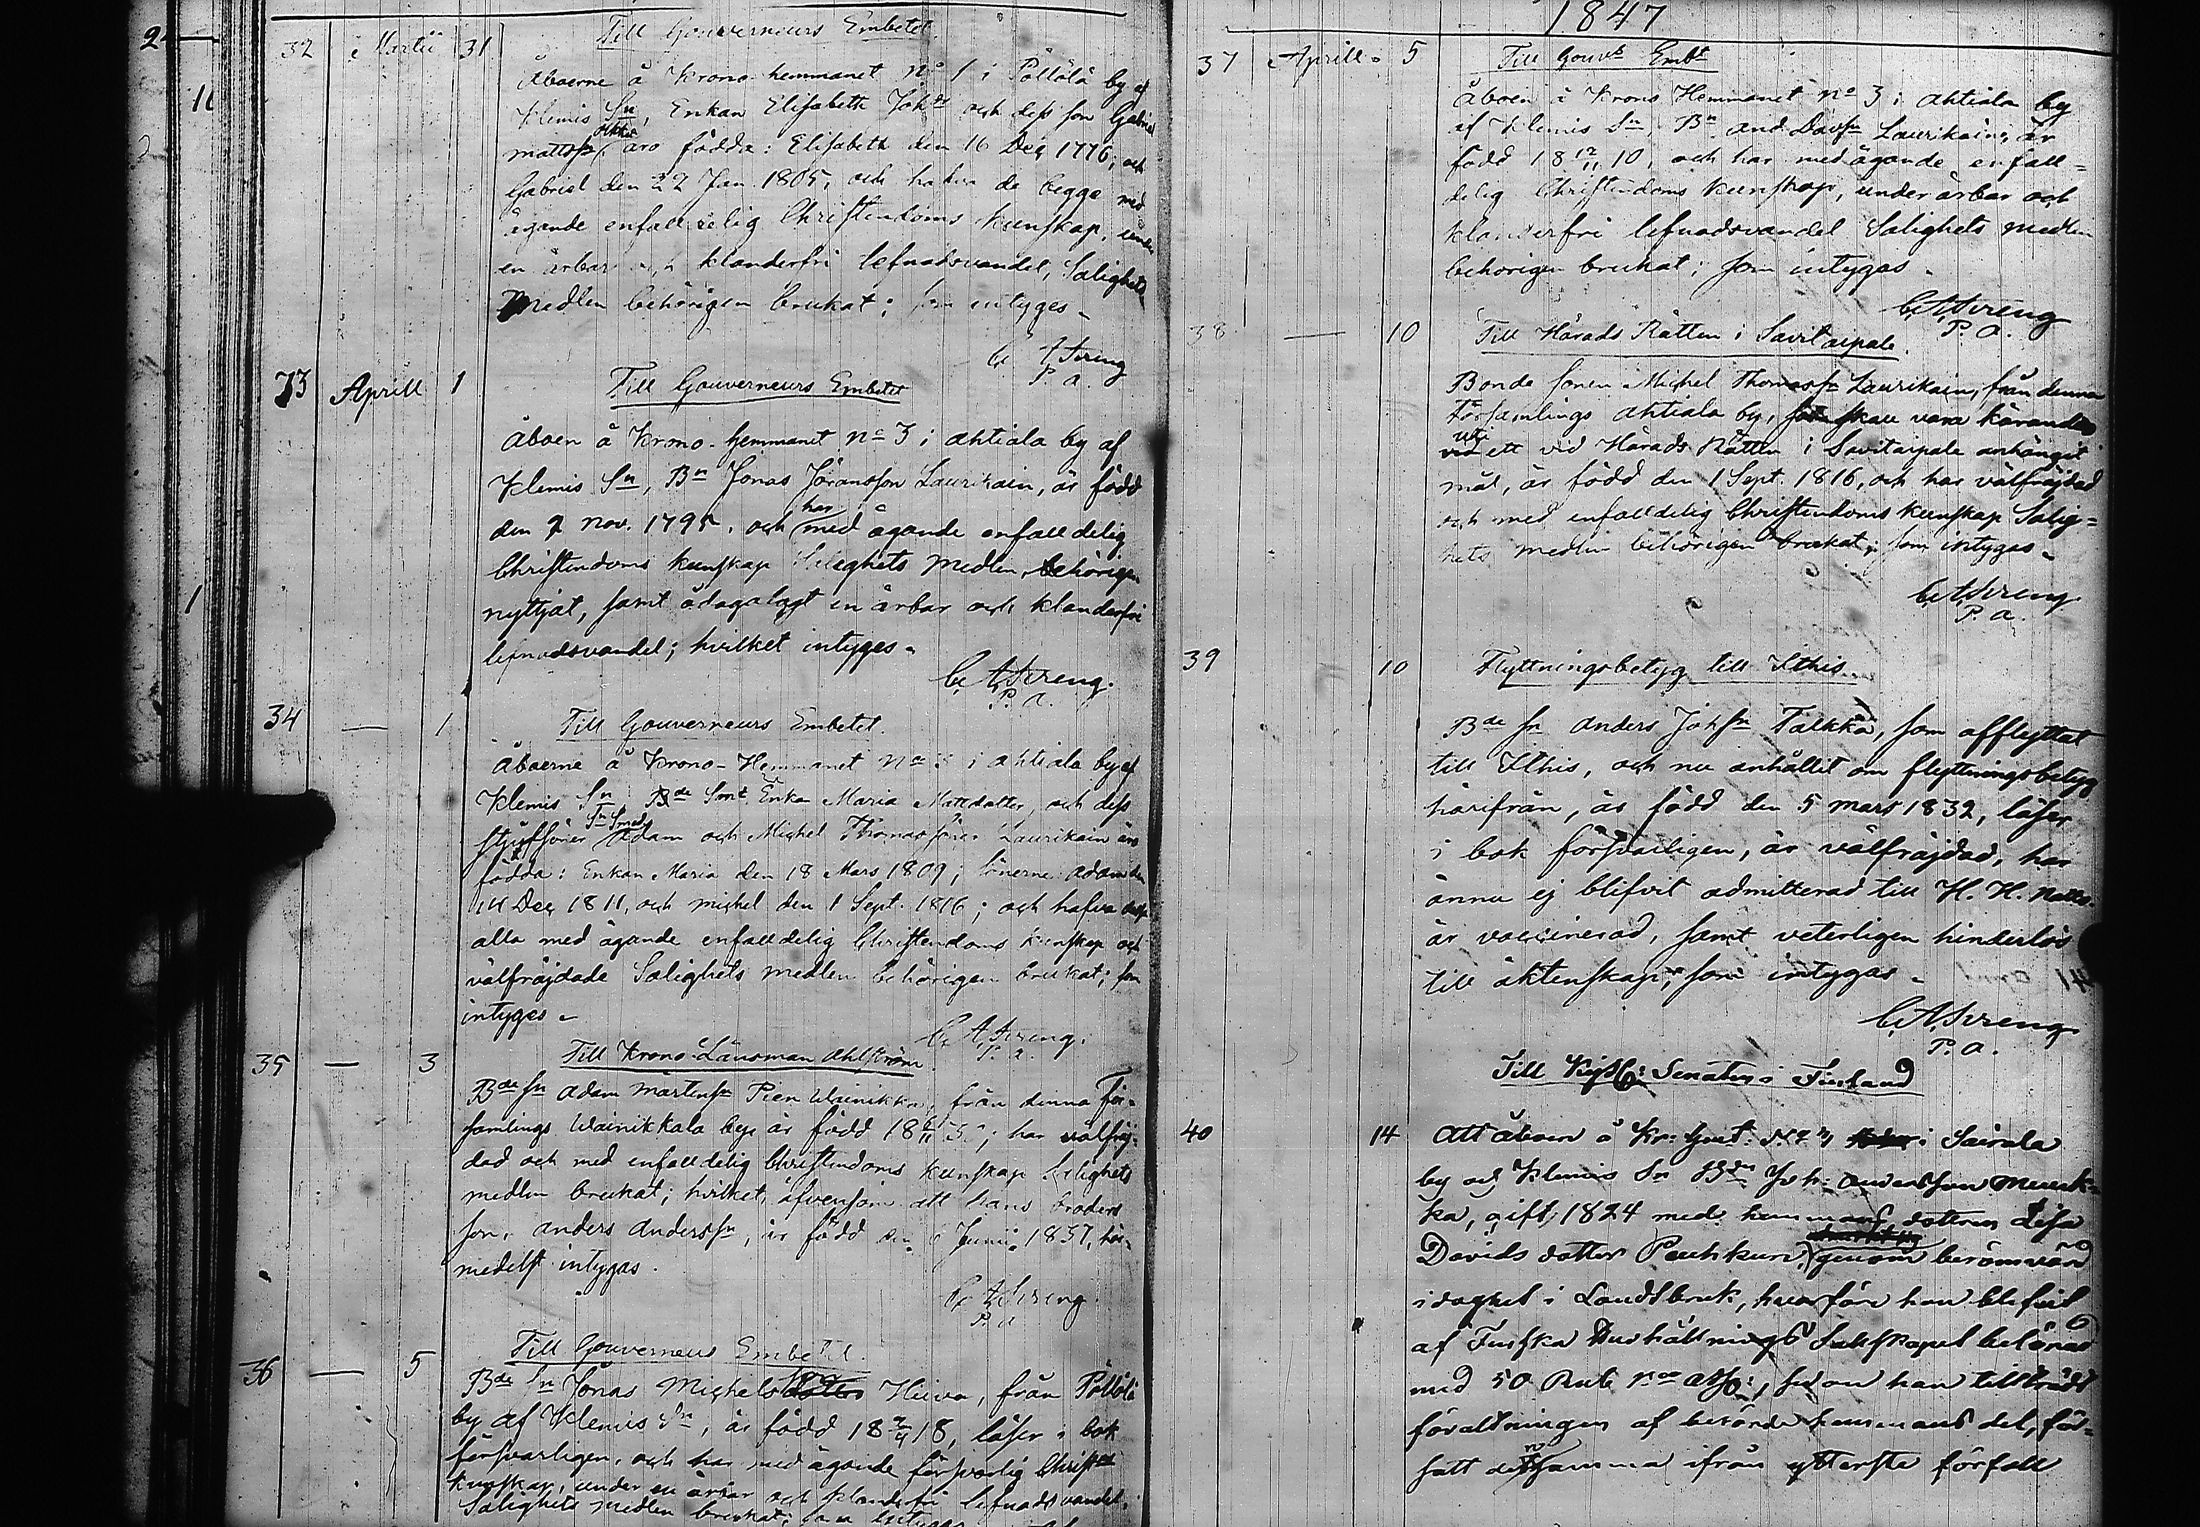 2
11
1
32 Martii 31 Till Gouverneurs Embetet.
Åboerne å Krono hemmanet No 1 i Pöllölä by af
Klemis Sn, Enkan Elisabeth Johdr och dess son Gabriel
mattsn äro födda: Elisabeth den 16 Dec 1776, och
Gabriel den 22 Jan. 1805, och hafva de begge med
ägande enfalldelig Christendoms kunskap, under
en ärbar och klanderfri lefnadsvandel, Salighets
Medlen behörigen brukat; som intyges.
C. A. Streng
P. a.
33 Aprill 1 Till Gouverneurs Embetet
Åboen å Krono-hemmanet No 3 i ahtiala by af
Klemis Sn, Bn Jonas Göransson Laurikain, är född
den 2 Nov. 1795, och har med ägande enfalldelig
Christendoms kunskap Saleghets Medlen behörigen
nyttjat, samt ådagalagt en ärbar och klanderfri
lefnadsvandel; hvilket intyges.
C. A. Streng.
P. a.
34 — 1 Till Gouverneurs Embetet.
Åboerne å Krono-Hemmanet No 3 i ahtiala by af
Klemis Sn, Bde Enka Maria Mattsdotter, och dess
stjufsöner Adam och Michel Thomassöner Laurikain äro
födda: Enkan Maria den 18 Mars 1809; sönerne: Adam den
Dec 1811, och Michel den 1 Sept. 1816; och hafva
alla med ägande enfalldelig Christendoms kunskap och
välfräjdade Salighets medlen behörigen brukat; som
intyges.
C. A. Streng.
P. a.
35 — 3 Till Krono-Länsman Ahlström
Bde sn Adam Mårtensn Pien Wainikka, från denna För=
samlings Wainikkala by, är född 18 ; har välfräj=
dad och med enfalldelig Christendoms kunskap Salighets
medlen brukat; hvilket, äfvensom att hans broders
son, Anders Anderssn, är född den 6 Junii 1837, här=
medelst intygas.
C. A. Streng.
P. a.
36 — 5 Till Gouverneurs Embetet.
Bde sn Jonas Michels Hiiva, från Pöllölä
by af Klemis Sn, är född 18 18, läser i bok
försvarligen, och har med ägande försvarlig Christ
kunskap, under en ärbar och klanderfri lefnadsvandel,
Salighets medlen brukat; som intyges
1847
37 Aprill 5 Till Gouvs Embt
Åboen å Krono Hemmanet No 3 i ahtiala by
af Klemis Sn, Bn And. Davsn Laurikain, är
född 18 12/11 10, och har med ägande enfall=
delig Christendoms kunskap, under ärbar och
klanderfri lefnadsvandel Salighets medlen
behörigen brukat; som intygas.
C. A. Streng
P. a.
38 — 10 Till Härads Rätten i Savitaipale.
Bonde sonen Michel Thomassn Laurikain, från denna
Församlings ahtiala by, skall vara kärande
uti ett vid Härads Rätten i Savitaipale anhängit
mål, är född den 1 Sept. 1816, och har välfräjdad
och med enfalldelig Christendoms kunskap Salig=
hets medlen behörigen brukat; som intygas.
C. A. Streng.
P. a.
39 10 Flyttningsbetyg till Itthis.
Bde sn Anders Johsn Talkka, som afflyttat
till Itthis, och nu anhållit om flyttningsbetyg
härifrån, är född den 5 mars 1832, läser
i bok försvarligen, är välfräjdad, har
ännu ej blifvit admitterad till H. H. Nattv.
är vaccinerad, samt veterligen hinderlös
till äktenskap; som intygas.
C. A. Streng.
P. a.
Till Senaten i Finland
40 14 Att åboen å Kr: hmt. No 2 i Sairala
by af Klemis Sn Bdn Joh: Andersson Muuk=
ka, gift 1824 med hemmans dottern Lisa
Davids dotter Pauhkun, genom berömvärd
idoghet i Landtbruk, hvarföre han blefvit
af Finska Hushållnings Sällskapet belönad
med 50 Rub. , sedan han tillträdt
förvaltningen af berörde hemmans del, för=
satt densamma ifrån ytterste förfall